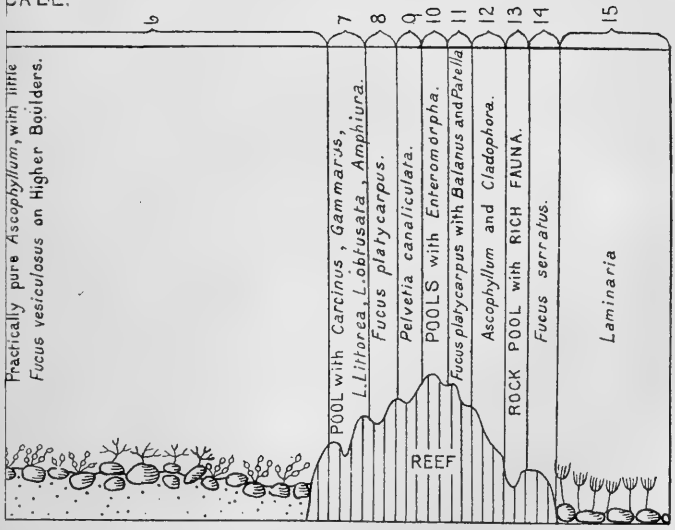 6
Practically pure Ascophyllum, with little
Fucus vesiculosus on Higher Boulders.
7
POOL with Carcinus, Gammarus,
L. Littorea, L. obtusata, Amphiura.
8
Fucus platycarpus.
9
Pelvetia canaliculata.
10
POOLS with Enteromorpha.
11
Fucus platycarpus with Balanus and Patella
12
Ascophyllum and Cladophora.
13
ROCK POOL with RICH FAUNA.
14
Fucus serratus.
15
Laminaria
REEF